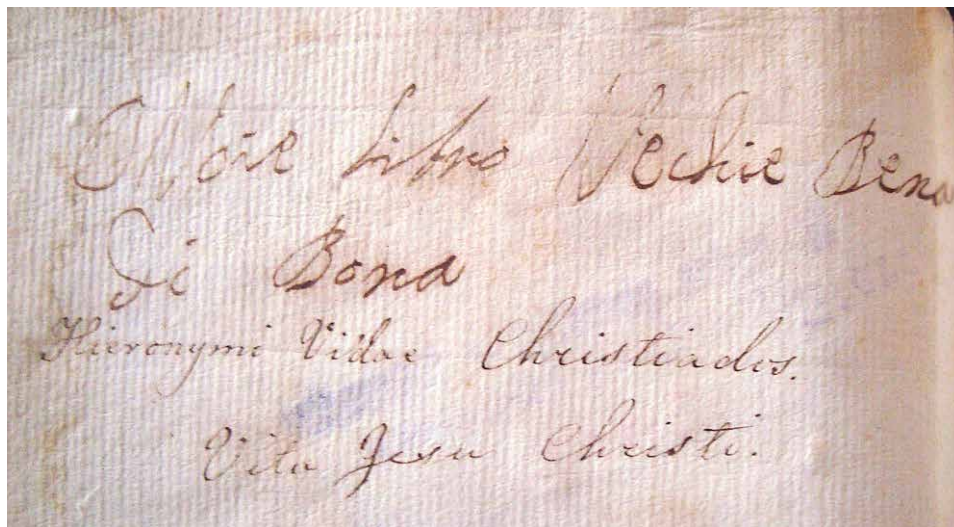 libro Vechie Bena
di Bona
Hieronymi Vidae Christiados.
Vita Jesu Christi.